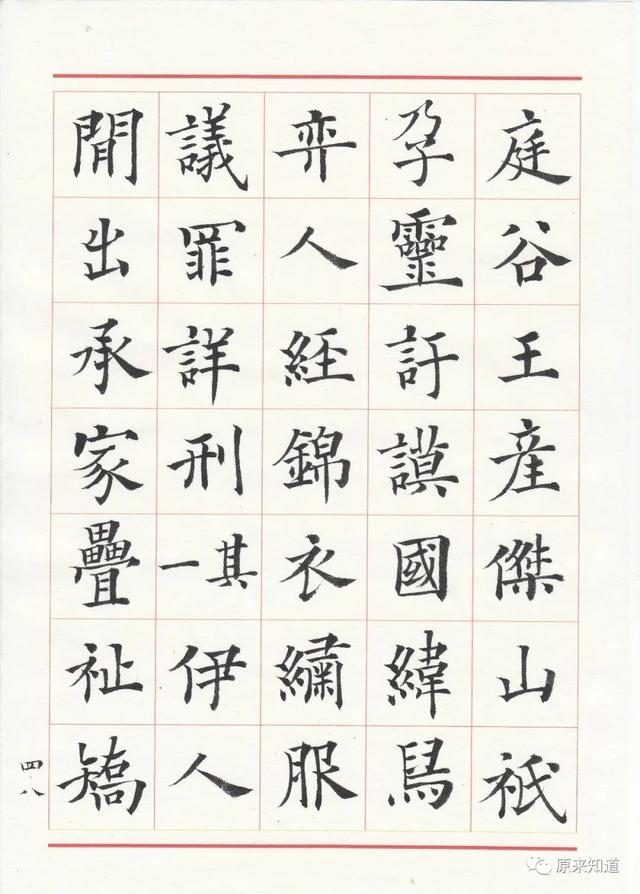 庭谷王産傑山祇
孕靈訏謨國緯舄
弈人經錦衣繡服
議罪詳刑其一伊人
閒出承家疊祉矯
四八
原来知道